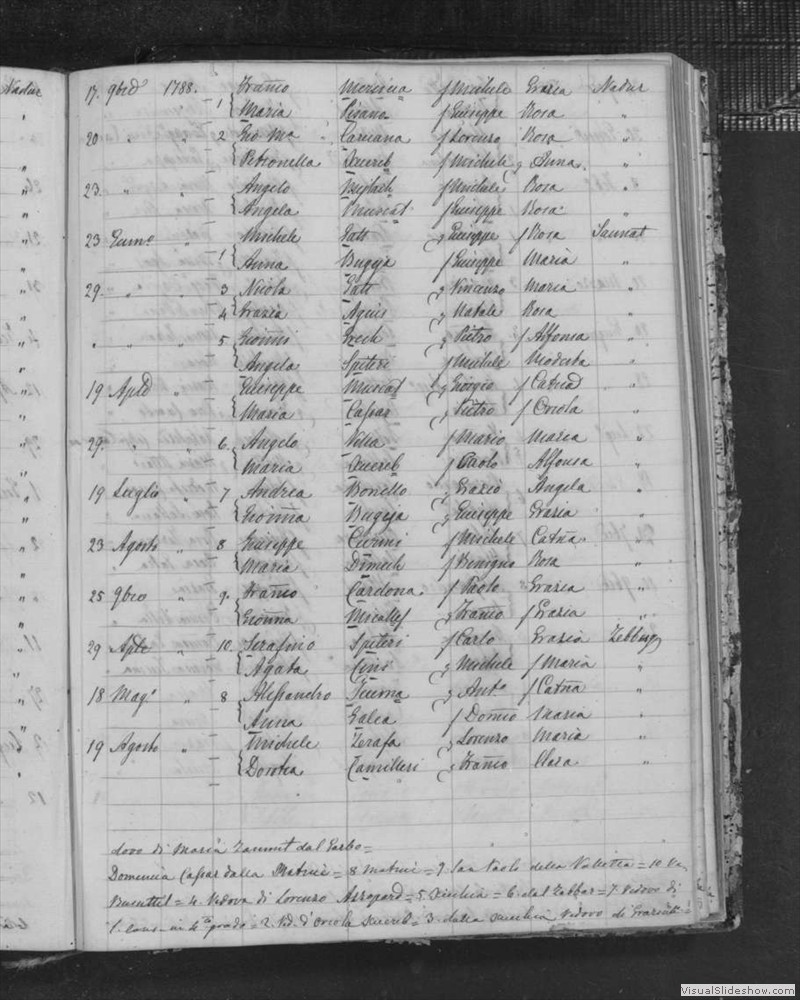 Nadur
17. 9bre 1788. Franco Mercieca f Michele Grazia Nadur
1 Maria Pisana f Giuseppe Rosa "
20 " " 2. Gio Ma Caruana f Lorenzo Rosa "
Petronella Xuereb f Michele q Anna "
23. " " Angelo f Michele Rosa "
Angela Muscat f Giuseppe Rosa "
23 " Michele Tatt q Giuseppe f Rosa Sannat
1 Anna Bugeja f Giuseppe Maria "
29. " " 3 Nicola Tatt q Vincenzo Maria "
4 Grazia Agius q Natale Rosa "
" " " 5 Grech q Pietro f Alfonsa "
Angela Spiteri f Michele Modesta "
19 Aple " Giuseppe Muscat q Giorgio f Catna "
Maria Caspar q Pietro f Oriola "
29. " " 6. Angelo Vella f Mario Maria "
Maria Xuereb f Paolo Alfonsa "
19 Luglio " 7 Andrea Bonello q Grazio Angela "
Gioanna Bugeja q Giuseppe Grazia "
23 Agosto " 8 Giuseppe f Michele Catna "
Maria Dimech f Benigno Rosa "
25 9bre " 9. Franco Cardona f Paolo Grazia "
Gionna Micallef q Franco f Grazia "
29 Aple " 10. Serafino Spiteri f Carlo Grazia Zebbug
Agata Cini q Michele f Maria "
18 Mago " 8 Alessandro Teuma q Anto f Catna "
Anna Galea f Domco Maria "
19 Agosto " Michele Zerafa q Lorenzo Maria "
Dorotea Camilleri q Franco Clara "
dovo di Maria Zammit dal Garbo =
Domenica Caspar dalla Matrice = 8 matrice = 9. San Paolo della Valletta = 10 Ve
= 4. Vedova di Lorenzo Azzopard = 5. Xeuchia = 6. dal Zabbar = 7. Vedovo di
1. cons. in 4o grado = 2. Ved. d'Oriola Xuereb = 3. dalla Xeuchia Vedovo di
VisualSlideshow.com